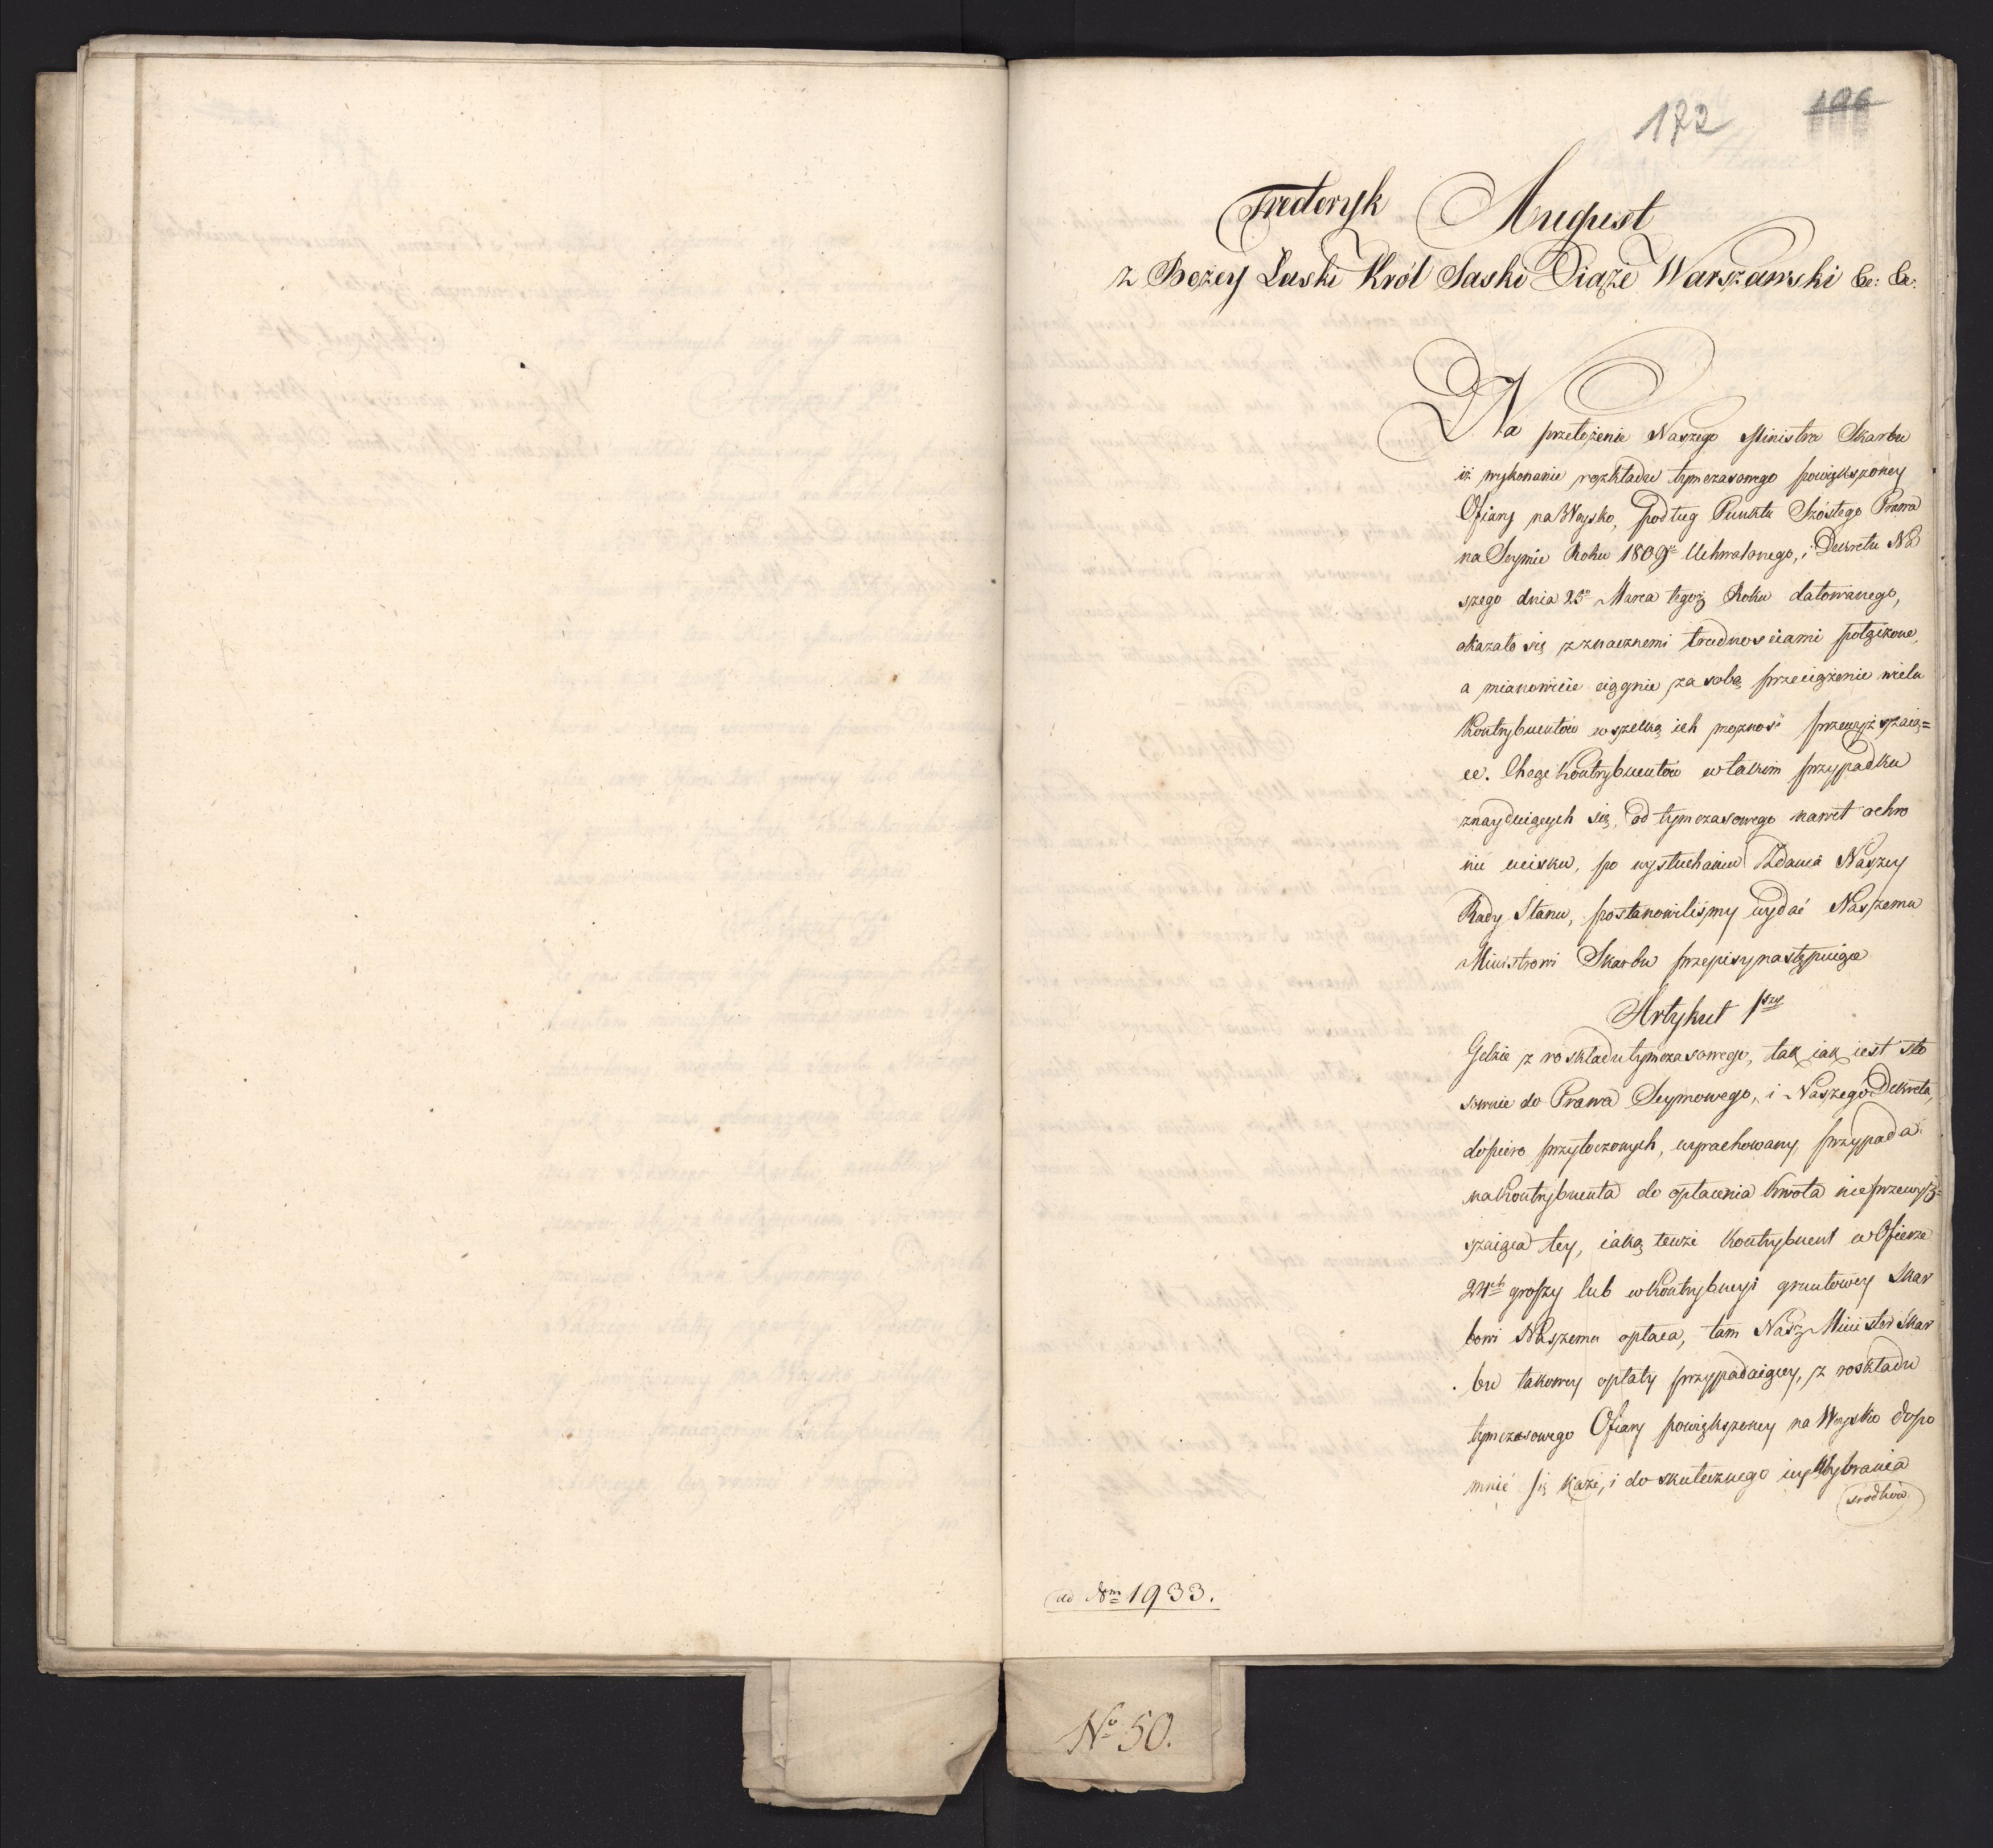 172 196
Frederyk August
z Bożey Łaski Król Saski Xiąże Warszawski &c: &c:
Na przełożenie Naszego Ministra Skarbu
iż wykonanie rozkładu tymczasowego powiększoney
Ofiary na Woysko, podług Punktu Szóstego Prawa
na Seymie Roku 1809 Uchwalonego, i Dekretu Na
szego dnia 25 Marca tegoż Roku datowanego,
okazało się z znacznemi trudnosciami połączone,
a mianowicie ciągnie za sobą przeciążenie wielu
Kontrybuentów wszelką ich możność przewyższaią=
ce. Chcąc Kontrybuentów w takim przypadku
znayduiących się, od tymczasowego nawet ochro
nić ucisku, po wysłuchaniu Zdania Naszey
Rady Stanu, postanowiliśmy wydać Naszemu
Ministrowi Skarbu przepisy następuiące
Artykuł 1szy
Gdzie z roskładu tymczasowego, tak iak iest sto
sownie do Prawa Seymowego, i Naszego Dekretu,
dopiero przytoczonych, wyrachowany, przypada
na Kontrybuenta do opłacenia kwota nieprzewyż=
szaiąca tey, iaką tenże Kontrybuent w Ofierze
24 groszy lub w Kontrybucyi gruntowey Skar
bowi Naszemu opłaca, tam Nasz Minister Skar
bu takowey opłaty przypadaiącey, z roskładu
tymczasowego Ofiary powiększoney na Woysko dopo
mnieć się każe, i do skutecznego iey Wybrania
srodków
ad Nrm 1933.
No 50.